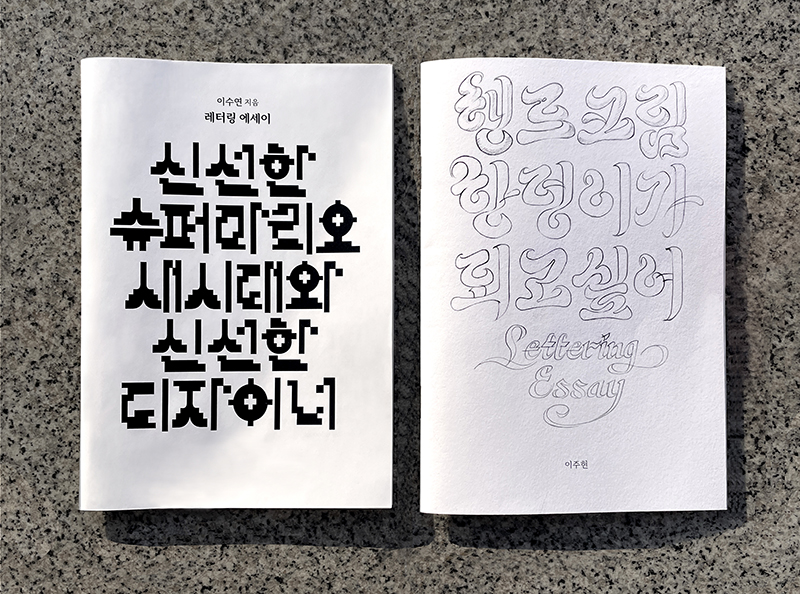 이수연 지음
레터링 에세이
신선한
슈퍼마리오
새시대와
신선한
디자이너
크림
되고싶어
Lettering
Essay
이주현